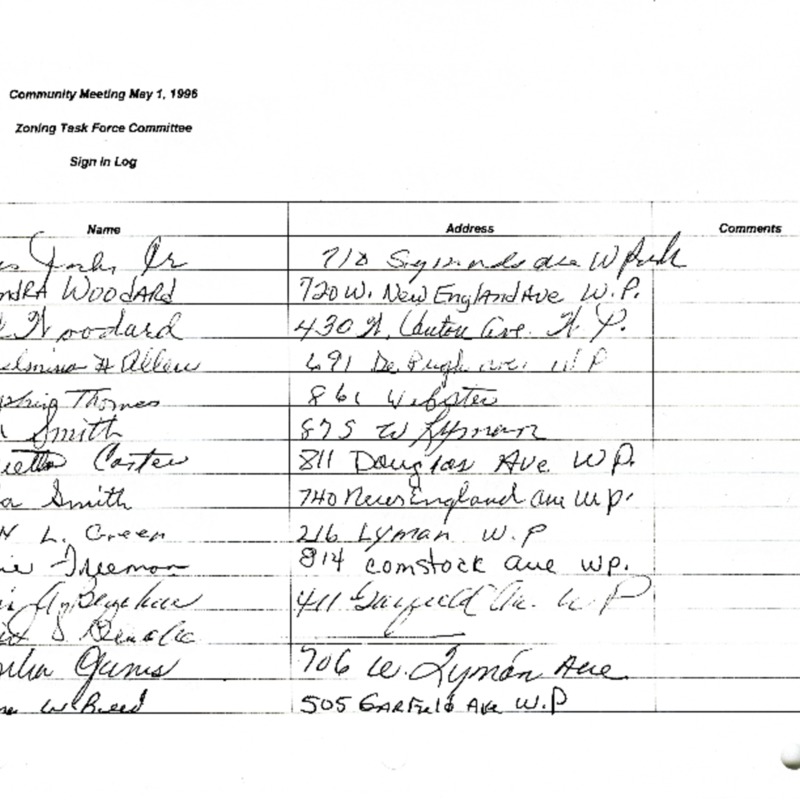 Community Meeting May 1, 1996
Zoning Task Force Committee
Sign in Log
Name Address Comments
Jr 710 Symonds ave W Park
WOODARD 720 W. New England Ave W.P.
Woodard 430 W. Canton Ave. W. P.
H Allen 691 De Pugh ave. W P
Thomas 861 Webster
Smith 875 W Lyman
Carter 811 Douglas Ave W P.
Smith 740 New England ave W p.
L. Green 216 Lyman W.P
Freeman 814 comstock ave wp.
411 Garfield Av. W P
S
706 W. Lyman Ave
W Reed 505 GARField Ave W.P